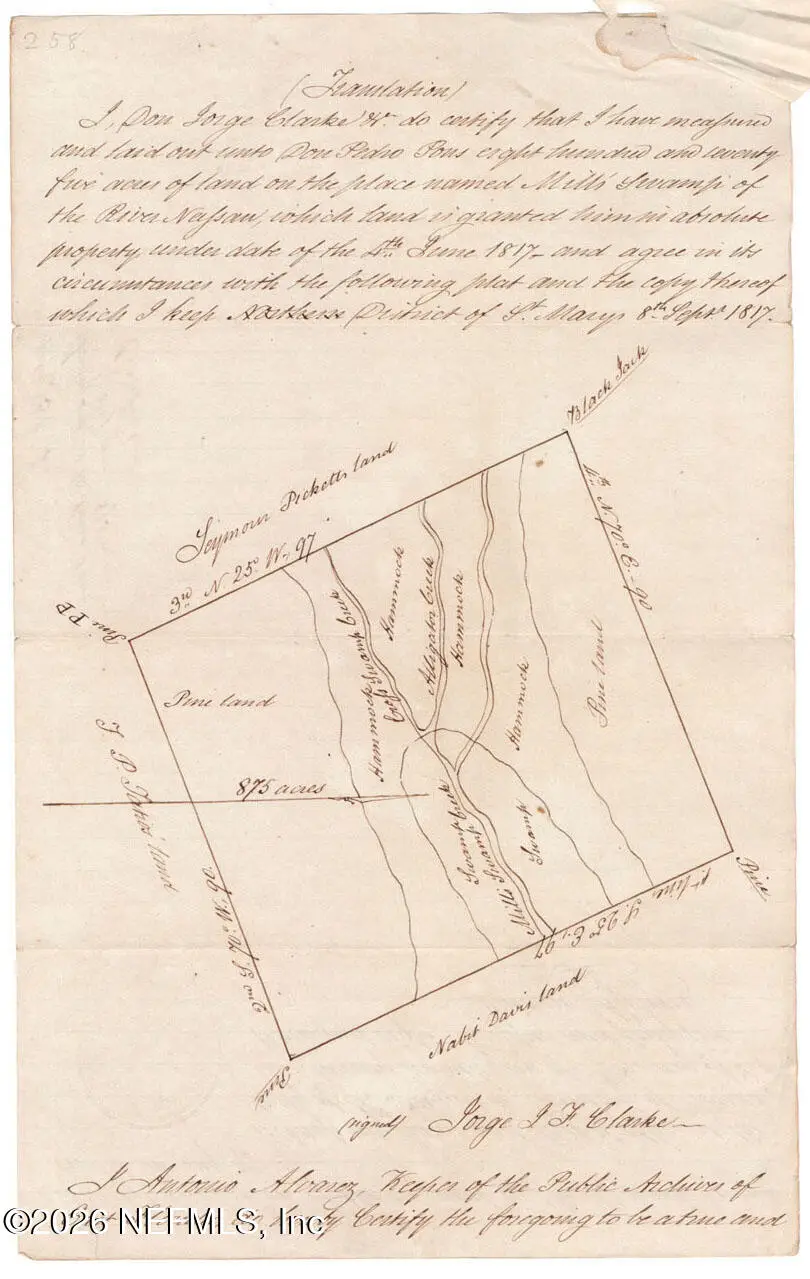 258
(Translation)
I, Don Jorge Clarke &c. do certify that I have measured
and laid out unto Don Pedro Pons eight hundred and seventy
five acres of land on the place named Mills Swamp of
the River Nassau, which land is granted him in absolute
property under date of the 4th June 1817 - and agree in its
circumstances with the following plat and the copy thereof
which I keep Northern District of St. Marys 8th Septr. 1817.
Black Jack
Seymour Picketts land
3rd N. 25° W. 97
4th N. 70° E. - 90
Pine PP
Hammock
Alligator Creek
Hammock
Hammock
Swamp Creek
Hammock
Pine land
Pine land
875 acres
land
Swamp Creek
Mills Swamp
Swamp
Pine
1st line S. 25° E. 97
2nd S. 70° W. 90
Nabit Davis land
Pine
(signed) Jorge J F. Clarke
I Antonio Alvarez, Keeper of the Public Archives of
do hereby Certify the foregoing to be a true and
©2026 NEFMLS, Inc